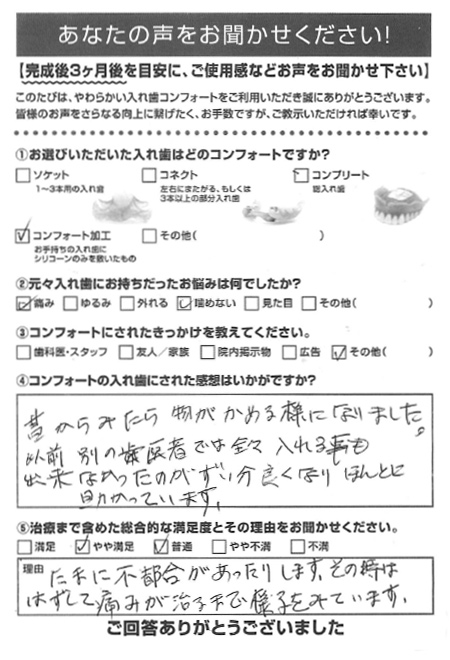 あなたの声をお聞かせください!
【完成後3ヶ月後を目安に、ご使用感などお声をお聞かせ下さい】
このたびは、やわらかい入れ歯コンフォートをご利用いただき誠にありがとうございます。
皆様のお声をさらなる向上に繋げたく、お手数ですが、ご教示いただければ幸いです。
①お選びいただいた入れ歯はどのコンフォートですか?
□ソケット □コネクト □コンプリート
1〜3本用の入れ歯 左右にまたがる、もしくは 総入れ歯
3本以上の部分入れ歯
☑コンフォート加工 □その他( )
お手持ちの入れ歯に
シリコーンのみを敷いたもの
②元々入れ歯にお持ちだったお悩みは何でしたか?
☑痛み □ゆるみ □外れる ☑噛めない □見た目 □その他( )
③コンフォートにされたきっかけを教えてください。
□歯科医・スタッフ □友人/家族 □院内掲示物 □広告 ☑その他( )
④コンフォートの入れ歯にされた感想はいかがですか?
昔からみたら物がかめる様になりました。
以前 別の歯医者では全々 入れる事も
出来なかったのがずい分良くなり ほんとに
助かっています。
⑤治療まで含めた総合的な満足度とその理由をお聞かせください。
□満足 ☑やや満足 ☑普通 □やや不満 □不満
理由 たまに不都合があったりします。その時は
はずして痛みが治るまで様子をみています。
ご回答ありがとうございました